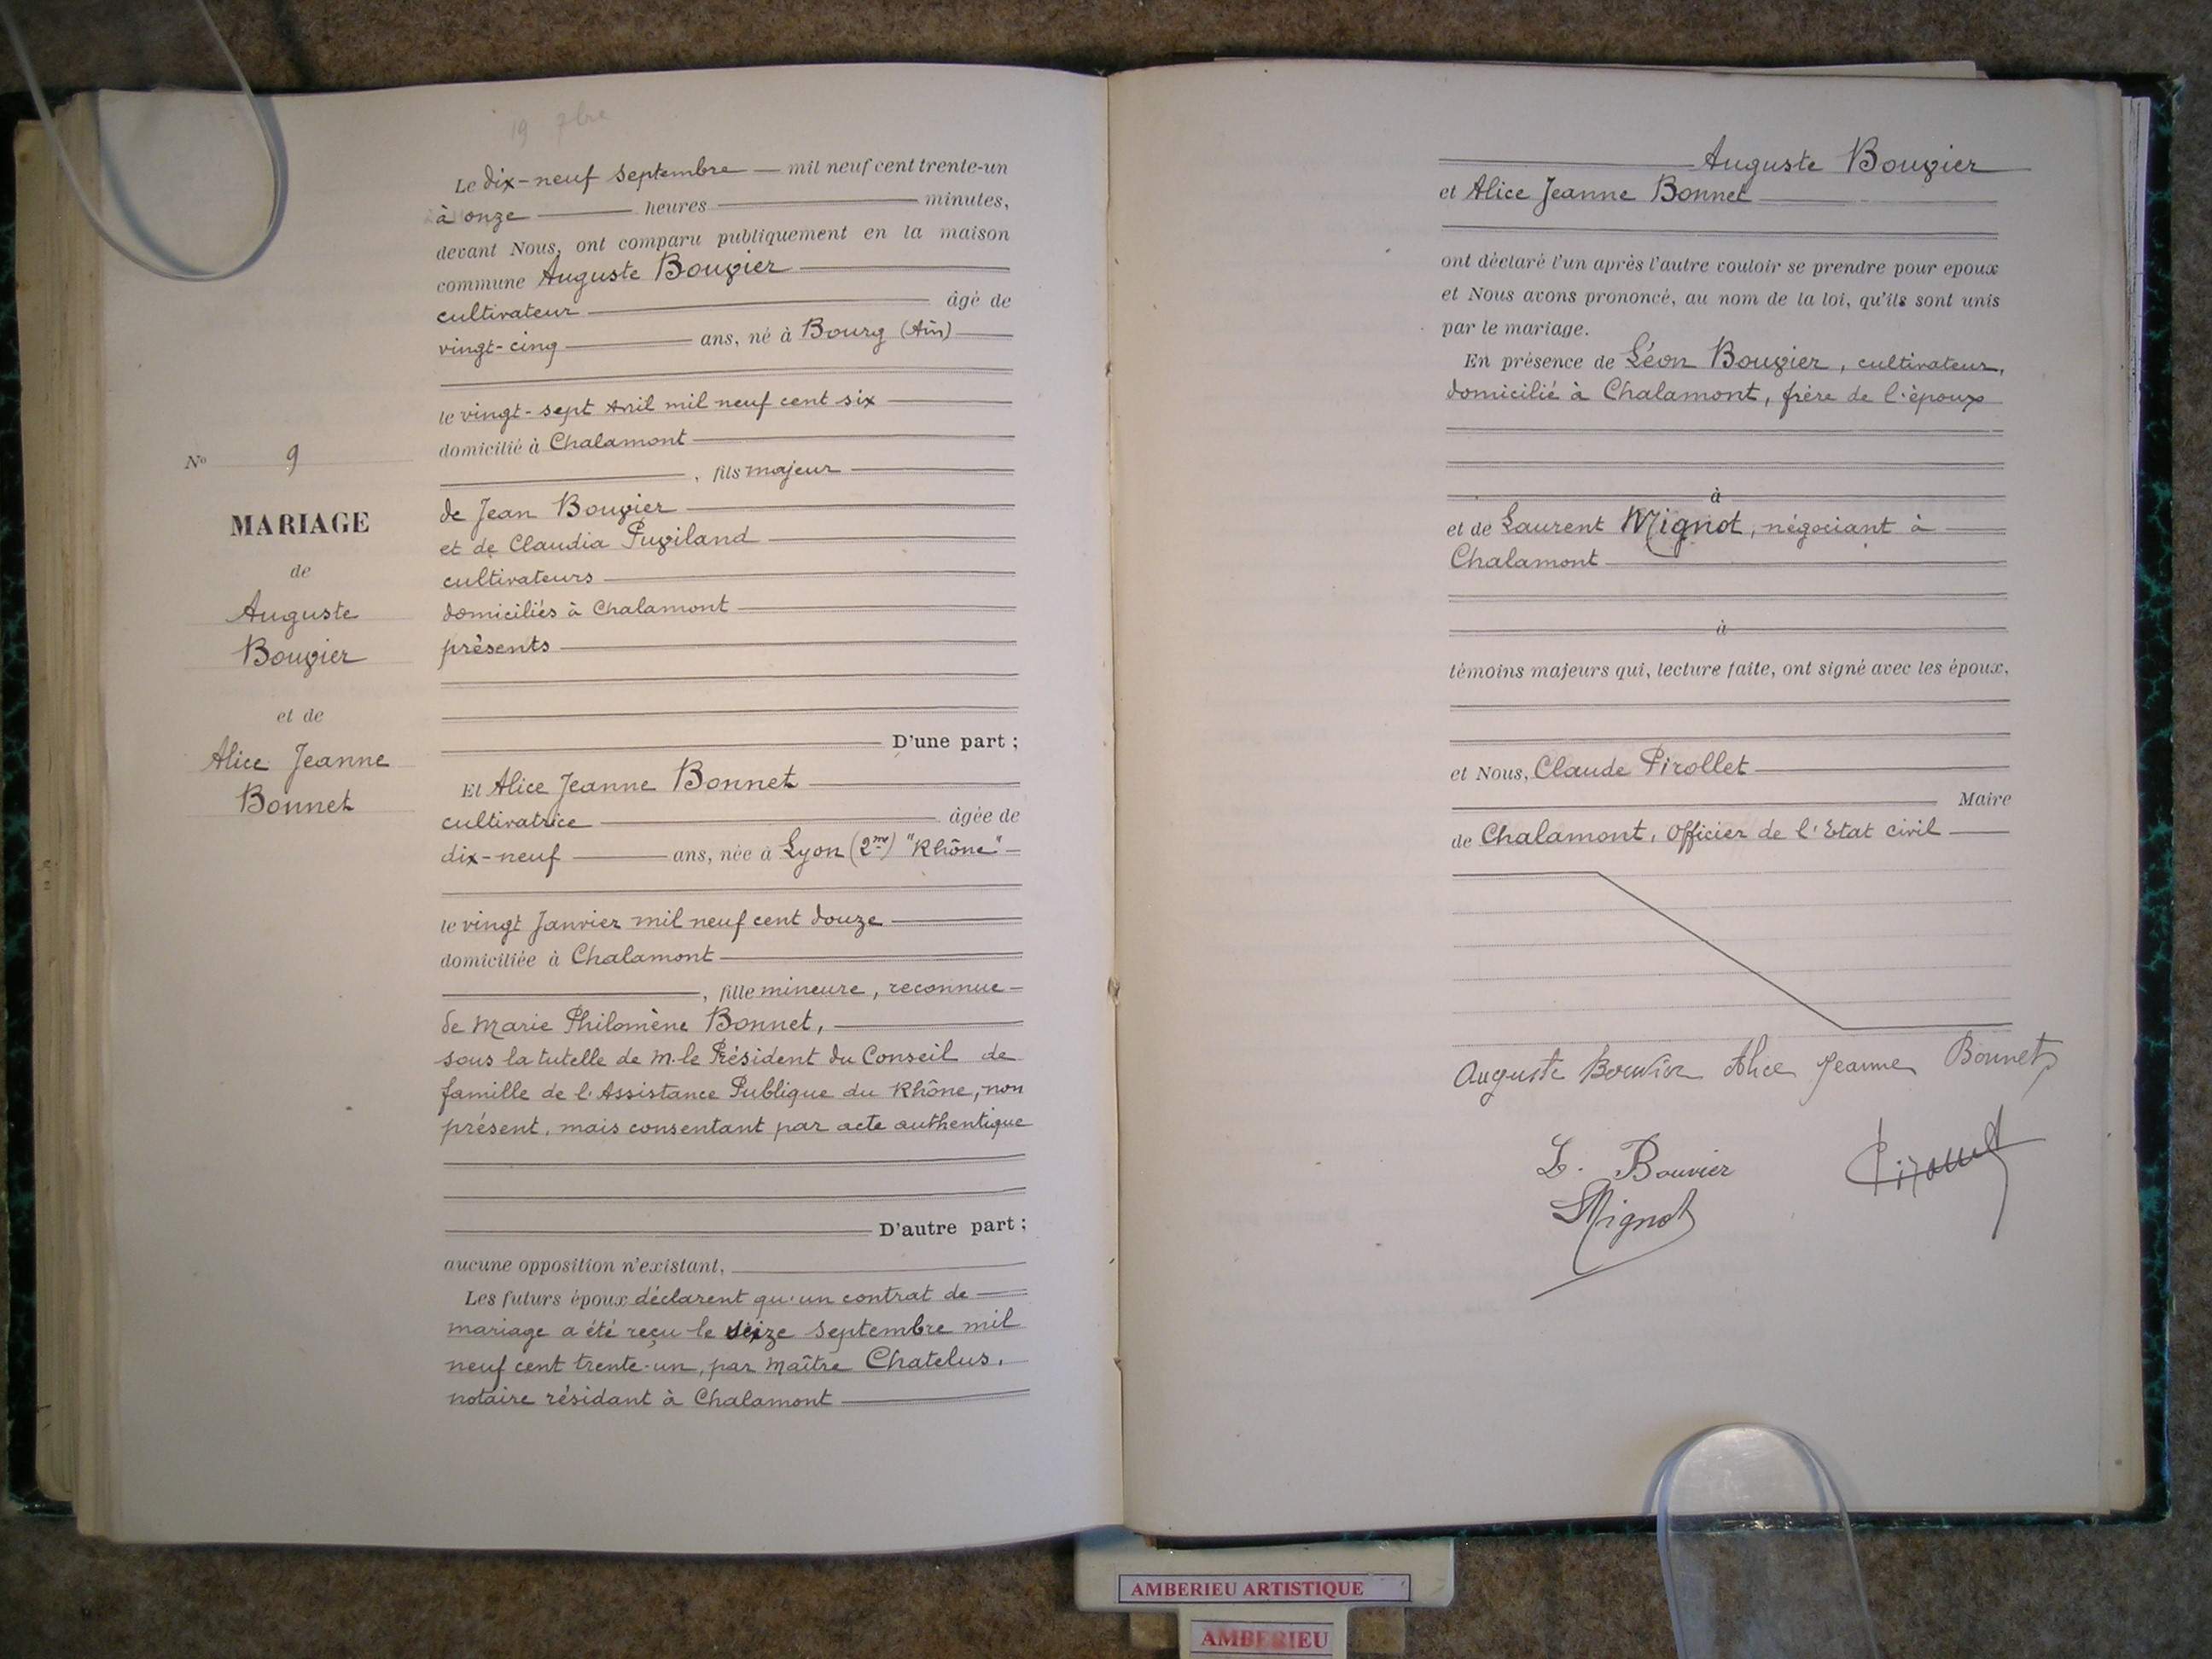 19 7bre
Le dix-neuf septembre mil neuf cent trente-un
à onze heures minutes,
devant Nous, ont comparu publiquement en la maison
commune Auguste Bouvier
cultivateur âgé de
vingt-cinq ans, né à Bourg (Ain)
le vingt-sept Avril mil neuf cent six
domicilié à Chalamont
, fils majeur
de Jean Bouvier
et de Claudia Puviland
cultivateurs
domiciliés à Chalamont
présents
D'une part ;
Et Alice Jeanne Bonnet
cultivatrice âgée de
dix-neuf ans, née à Lyon (2me) "Rhône"
le vingt Janvier mil neuf cent douze
domiciliée à Chalamont
, fille mineure, reconnue
de Marie Philomène Bonnet,
sous la tutelle de M. le Président du Conseil de
famille de l'Assistance Publique du Rhône, non
présent, mais consentant par acte authentique
D'autre part ;
aucune opposition n'existant,
Les futurs époux déclarent qu'un contrat de
mariage a été reçu le seize septembre mil
neuf cent trente-un, par Maître Chatelus,
notaire résidant à Chalamont
No 9
MARIAGE
de
Auguste
Bouvier
et de
Alice Jeanne
Bonnet
Auguste Bouvier
et Alice Jeanne Bonnet
ont déclaré l'un après l'autre vouloir se prendre pour epoux
et Nous avons prononcé, au nom de la loi, qu'ils sont unis
par le mariage.
En présence de Léon Bouvier, cultivateur,
domicilié à Chalamont, frère de l'époux
à
et de Laurent Mignot, négociant à
Chalamont
à
témoins majeurs qui, lecture faite, ont signé avec les époux,
et Nous, Claude Pirollet
Maire
de Chalamont, Officier de l'Etat civil
Auguste Bouvier Alice Jeanne Bonnet
L. Bouvier Pirollet
Mignot
AMBERIEU ARTISTIQUE
AMBERIEU